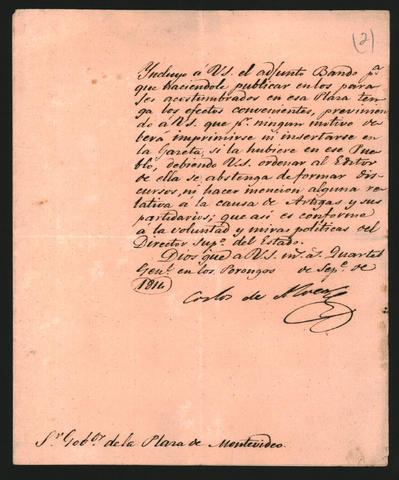 (2)
Incluyo á V.S. el adjunto Bando p.ª
que haciendole publicar en los para
ges acostumbrados en esa Plaza ten-
ga los efectos convenientes, previnien
do á V.S. que p.r ningun motivo de
berá imprimirse ni insertarse en
la Gazeta, si la hubiere en ese Pue
blo, debiendo V.S. ordenar al Editor
de ella se abstenga de formar dis-
cursos, ni hacer mencion alguna re-
lativa á la causa de Artigas y sus
partidarios; que asi es conforme
a la voluntad y miras politicas del
Director Sup.º del Estado.
Dios gue a V.S. m.s a.s Quartel
Gen.l en los Porongos de Sep.e de
1814
Carlos de Alvear
S.r Gob.or de la Plaza de Montevideo.